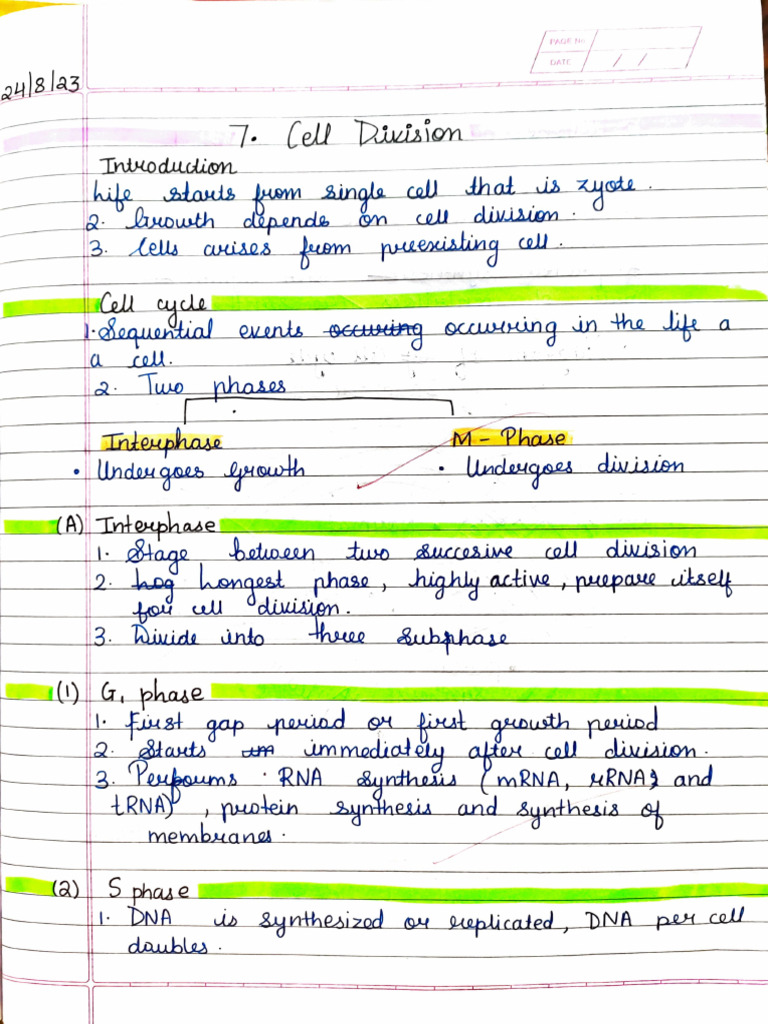 PAGE No.
DATE / /
24/8/23
7. Cell Division
Introduction
Life starts from single cell that is zyote.
2. Growth depends on cell division.
3. Cells arises from preexisting cell.
Cell cycle
1. Sequential events occuring occurring in the life a
a cell.
2. Two phases
Interphase M - Phase
• Undergoes Growth • Undergoes division
(A) Interphase
1. Stage between two succesive cell division
2. Log Longest phase, highly active, prepare itself
for cell division.
3. Divide into three subphase
(1) G₁ phase
1. First gap period or first growth period
2. Starts im immediately after cell division.
3. Perfoums RNA synthesis (mRNA, rRNA and
tRNA), protein synthesis and synthesis of
membranes.
(2) S phase
1. DNA is synthesized or replicated, DNA per cell
doubles.